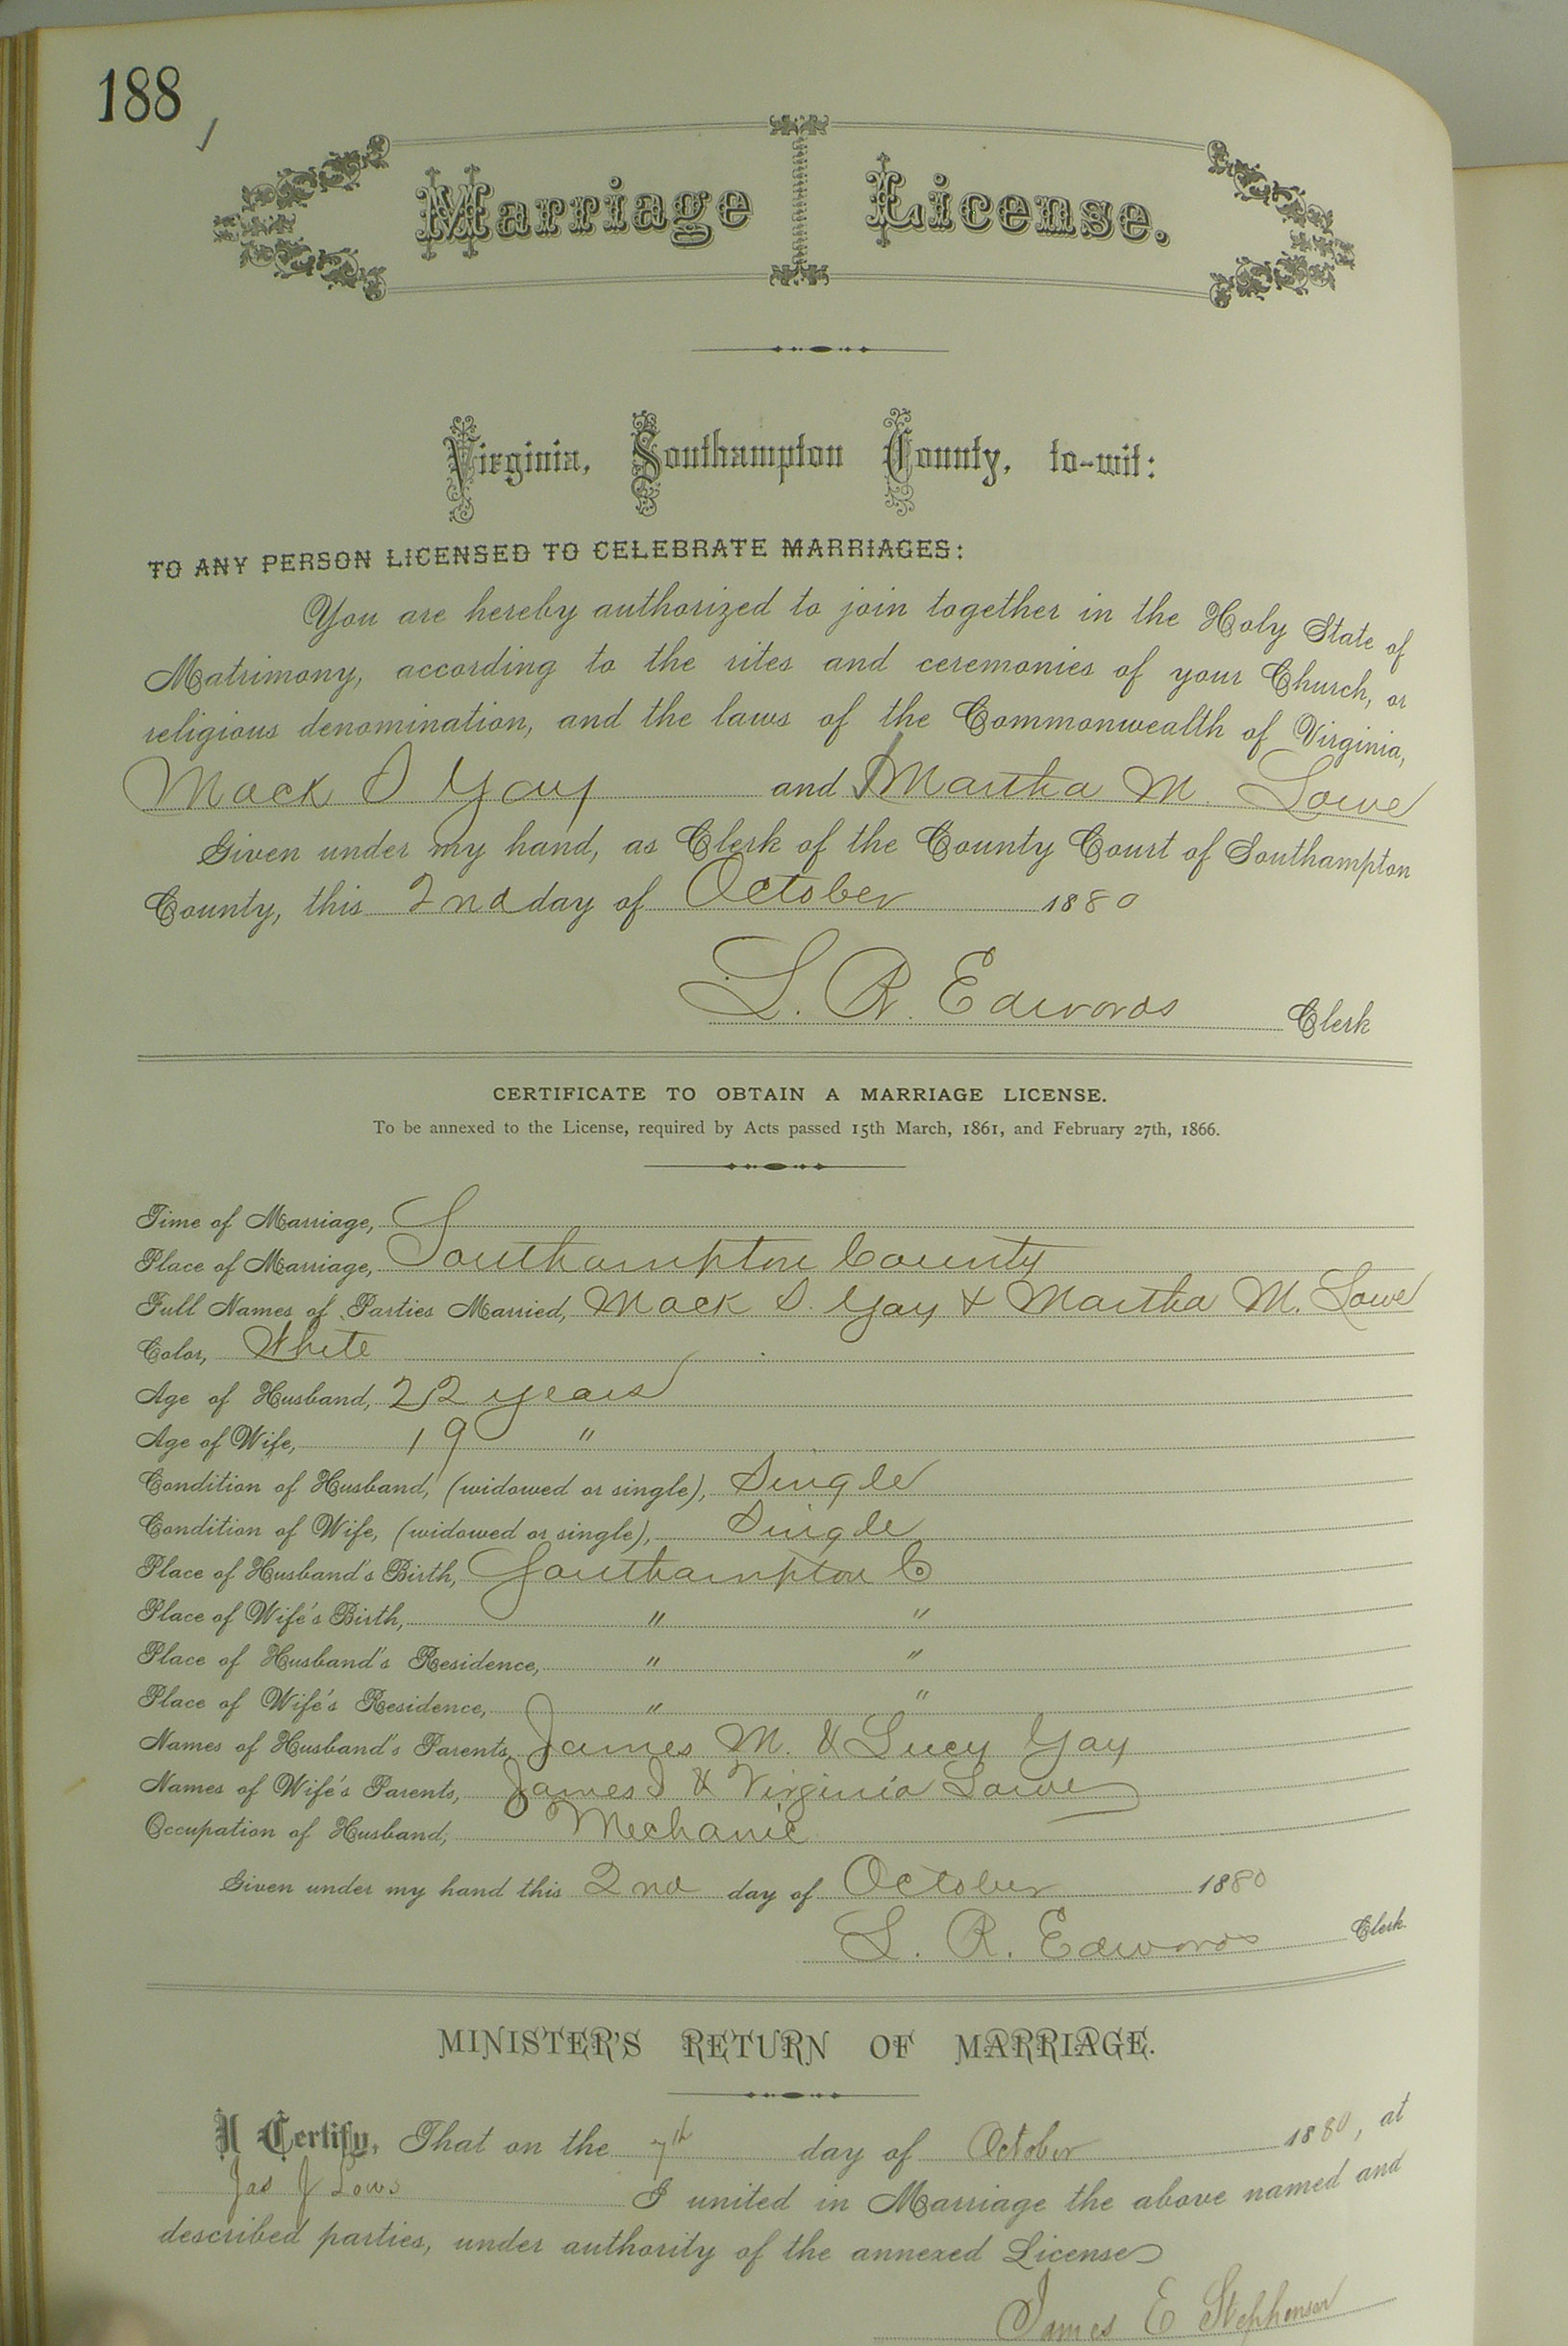 188
Marriage License.
Virginia, Southampton County, to-wit:
TO ANY PERSON LICENSED TO CELEBRATE MARRIAGES:
You are hereby authorized to join together in the Holy State of
Matrimony, according to the rites and ceremonies of your Church, or
religious denomination, and the laws of the Commonwealth of Virginia,
Mack S Gay and Martha M. Lowe
Given under my hand, as Clerk of the County Court of Southampton
County, this 2nd day of October 1880
L. R. Edwards Clerk
CERTIFICATE TO OBTAIN A MARRIAGE LICENSE.
To be annexed to the License, required by Acts passed 15th March, 1861, and February 27th, 1866.
Time of Marriage,
Place of Marriage, Southampton County
Full Names of Parties Married, Mack S. Gay & Martha M. Lowe
Color, White
Age of Husband, 22 years
Age of Wife, 19 "
Condition of Husband, (widowed or single), Single
Condition of Wife, (widowed or single), Single
Place of Husband's Birth, Southampton C
Place of Wife's Birth, " "
Place of Husband's Residence, " "
Place of Wife's Residence, " "
Names of Husband's Parents, James M. & Lucy Gay
Names of Wife's Parents, James J & Virginia Lowe
Occupation of Husband, Mechanic
Given under my hand this 2nd day of October 1880
L. R. Edwards Clerk
MINISTER'S RETURN OF MARRIAGE.
I Certify, That on the 7th day of October 1880, at
Jas J Lows I united in Marriage the above named and
described parties, under authority of the annexed License
James E Stephenson